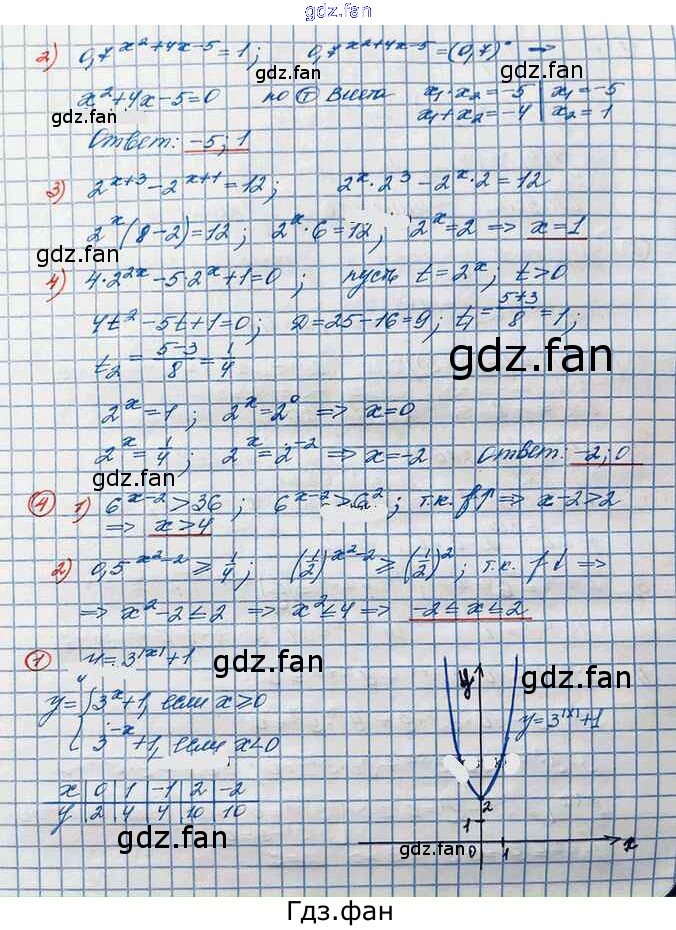 gdz.fan
2) 0,7^(x²+4x-5) = 1; 0,7^(x²+4x-5) = (0,7)⁰ →
gdz.fan gdz.fan
x²+4x-5=0 по Т Виета x₁·x₂=-5 | x₁=-5
gdz.fan x₁+x₂=-4 | x₂=1
Ответ: -5; 1
3) 2^(x+3) - 2^(x+1) = 12; 2^x·2³ - 2^x·2 = 12
2^x(8-2)=12; 2^x·6=12; 2^x=2 => x=1
gdz.fan gdz.fan
4) 4·2^(2x) - 5·2^x + 1 = 0; пусть t=2^x; t>0
4t²-5t+1=0; D=25-16=9; t₁ = (5+3)/8 = 1;
gdz.fan
t₂ = (5-3)/8 = 1/4
2^x=1; 2^x=2⁰ => x=0
2^x = 1/4; 2^x=2^(-2) => x=-2 Ответ: -2; 0
gdz.fan gdz.fan
4 1) 6^(x-2) > 36; 6^(x-2) > 6²; т.к. f↑ => x-2>2
=> x>4
gdz.fan
2) 0,5^(x²-2) ≥ 1/4; (1/2)^(x²-2) ≥ (1/2)²; т.к. f↓ =>
=> x²-2≤2 => x²≤4 => -2≤x≤2
1 y=3^|x|+1
gdz.fan gdz.fan
y = { 3^x+1, если x≥0
3^(-x)+1, если x<0
y
y=3^|x|+1
x | 0 | 1 | -1 | 2 | -2
y | 2 | 4 | 4 | 10 | 10
2
1
0 1 x
gdz.fan gdz.fan
Гдз.фан